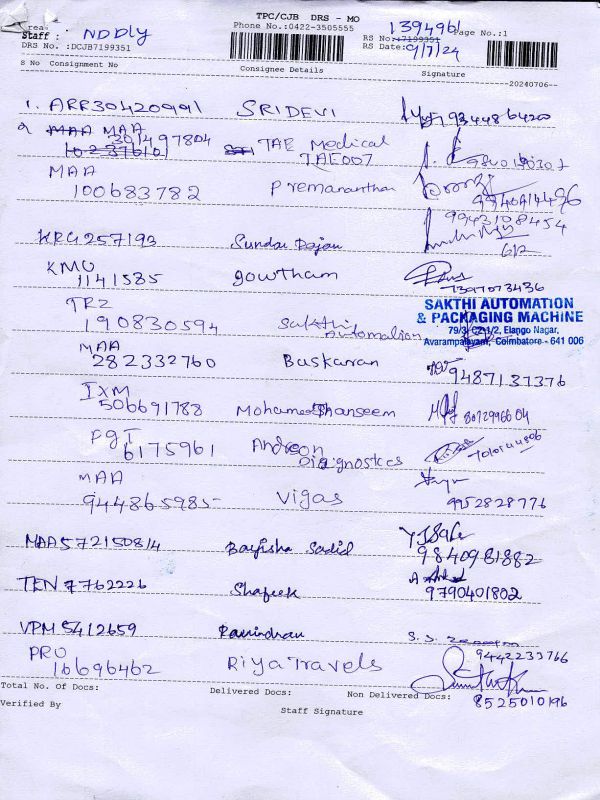 TPC/CJB DRS - MO
Area:
Staff : NDDLY
Phone No.:0422-3505555
1394961
Page No.:1
DRS No. :DCJB7199351
RS No:7199351
RS Date: 9/7/24
S No Consignment No Consignee Details Signature
20240706
1. ARR30420991 SRIDEVI 9344886420
2 MAA MAA
391497804 TAE Medical
TAE007
MAA
100683782 Premananthan 9940914496
9943108454
KRG257193 Sundar Rajan
KMU
1141585 Gowtham 7397073436
TRZ
190830594 Sakthi Automation
SAKTHI AUTOMATION
& PACKAGING MACHINE
Elango Nagar,
Avarampalayam, Coimbatore - 641 006
MAA
282332760 Baskaran 9487137376
IXM
506691788 Mohamed Thanseem 8072996604
PGT
6175961 Andreon
Diagnostics
MAA
944865985 Vigas 9952828776
MAA572150814 Bayisha Sadid 9840981882
TEN 7762226 Shafeek 9790401802
VPM 5412659 Ravindran S.S.
9442233766
PRO
16696462 Riya Travels
8525010196
Total No. Of Docs: Delivered Docs: Non Delivered Docs:
Verified By
Staff Signature